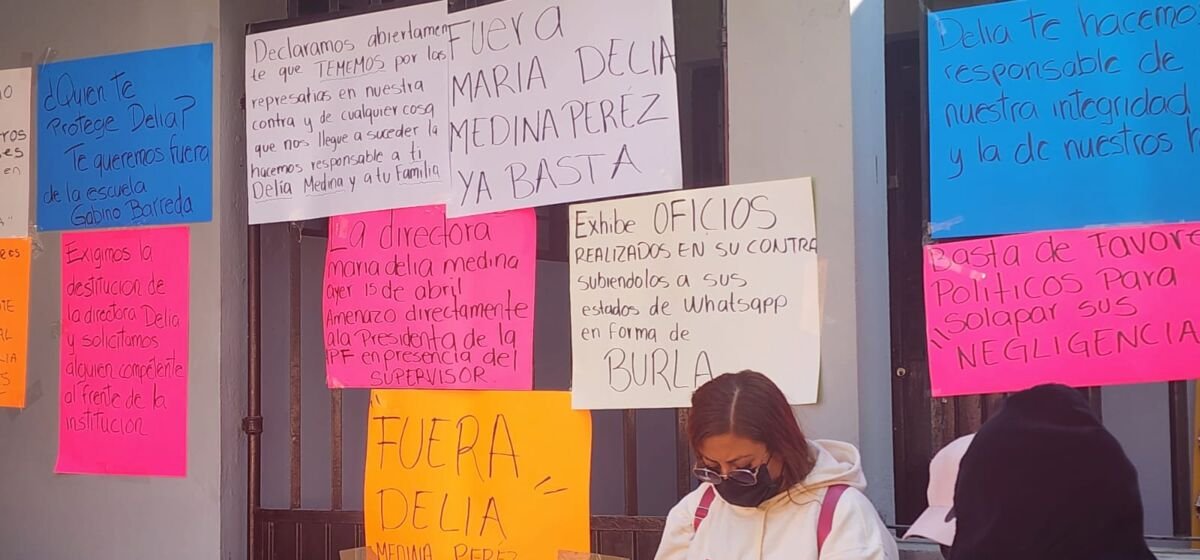 ¿Quien te
Protege Delia?
Te queremos fuera
de la escuela
Gabino Barreda
Exigimos la
destitucion de
la directora Delia
y solicitamos
alguien competente
al frente de la
institucion
Declaramos abiertamen
te que TEMEMOS por las
represarias en nuestra
contra y de cualquier cosa
que nos llegue a suceder la
hacemos responsable a ti
Delia Medina y a tu Familia
Fuera
MARIA DELIA
MEDINA PERÉZ
YA BASTA
La directora
maria delia medina
ayer 15 de abril
Amenazo directamente
ala Presidenta de la
PF en presencia del
SUPERVISOR.
Exhibe OFICIOS
REALIZADOS EN SU CONTRA
subiendolos a sus
estados de Whatsapp
en forma de
BURLA
"FUERA
DELIA
MEDINA PEREZ
Delia te hacemos
responsable de
nuestra integridad
y la de nuestros
Basta de Favore
Politicos Para
"solapar sus
NEGLIGENCIA